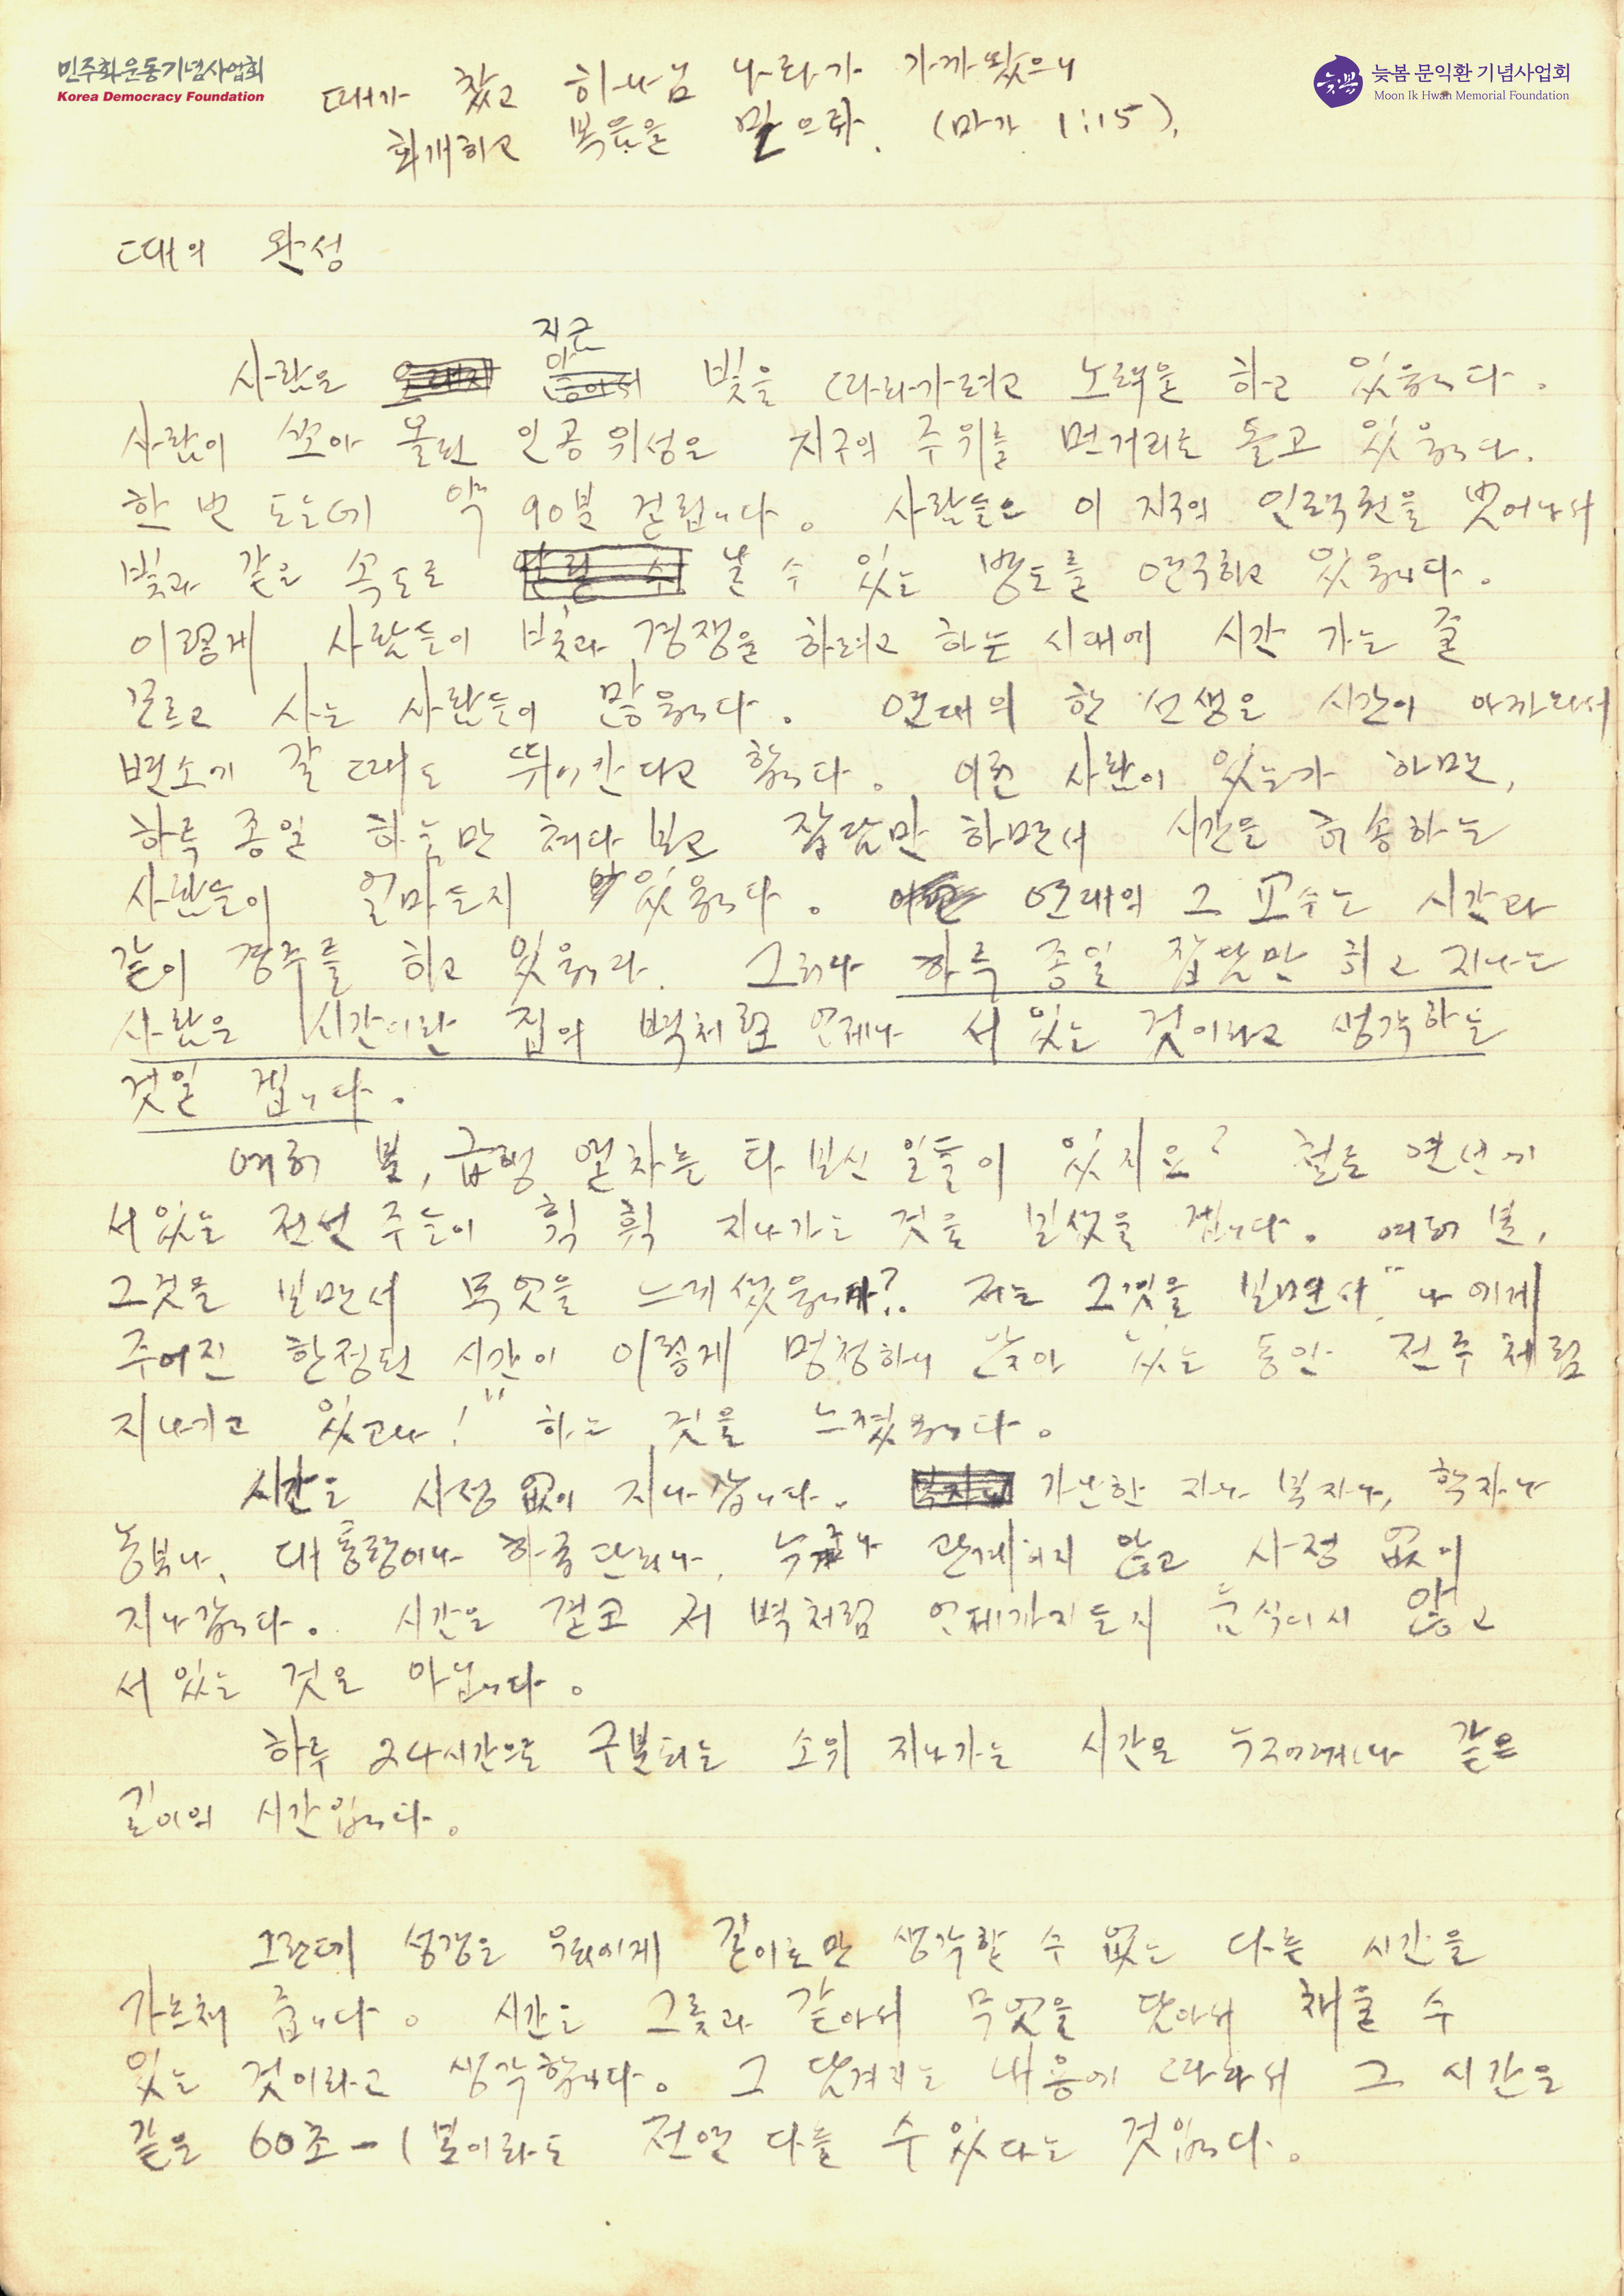 민주화운동기념사업회
Korea Democracy Foundation
늦봄
늦봄 문익환 기념사업회
Moon Ik Hwan Memorial Foundation
때가 찼고 하나님 나라가 가까왔으니
회개하고 복음을 믿으라. (마가 1:15).
때의 완성
지금
사람은 빛을 따라가려고 노력을 하고 있읍니다.
사람이 쏘아 올린 인공위성은 지구의 주위를 먼거리로 돌고 있읍니다.
한 번 도는데 약 90분 걸립니다. 사람들은 이 지구의 인력권을 벗어나서
빛과 같은 속도로 날 수 있는 방도를 연구하고 있읍니다.
이렇게 사람들이 빛과 경쟁을 하려고 하는 시대에 시간 가는 줄
모르고 사는 사람들이 많읍니다. 연대의 한 선생은 시간이 아까와서
변소에 갈 때도 뛰어간다고 합니다. 어떤 사람이 있는가 하면,
하루 종일 하늘만 쳐다 보고 잡담만 하면서 시간을 허송하는
사람들이 얼마든지 있읍니다. 연대의 그 교수는 시간과
같이 경주를 하고 있읍니다. 그러나 하루 종일 잡담만 하고 지나는
사람은 시간이란 집의 벽처럼 언제나 서 있는 것이라고 생각하는
것일 겝니다.
여러 분, 급행 열차를 타 보신 일들이 있지요? 철로 연변에
서있는 전선 주들이 휙 휙 지나가는 것을 보셨을 겝니다. 여러 분,
그것을 보면서 무엇을 느끼셨읍니까? 저는 그것을 보면서 "나에게
주어진 한정된 시간이 이렇게 멍청하니 앉아 있는 동안 전주처럼
지나가고 있고나!" 하는 것을 느꼈읍니다.
시간은 사정 없이 지나갑니다. 가난한 자나 부자나, 학자나
농부나, 대통령이나 하급관리나, 누구나 관계하지 않고 사정 없이
지나갑니다. 시간은 결코 저 벽처럼 언제까지든지 움직이지 않고
서 있는 것은 아닙니다.
하루 24시간으로 구분되는 소위 지나가는 시간은 누구에게나 같은
길이의 시간입니다.
그런데 성경은 우리에게 길이로만 생각할 수 없는 다른 시간을
가르쳐 줍니다. 시간은 그릇과 같아서 무엇을 담아서 채울 수
있는 것이라고 생각합니다. 그 담겨지는 내용에 따라서 그 시간은
같은 60초-1분이라도 전연 다를 수 있다는 것입니다.